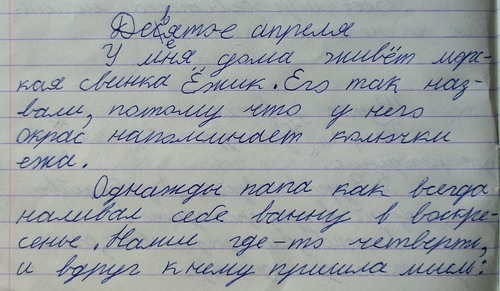 Девятое апреля
У меня дома живёт морс-
кая свинка Ёжик. Его так наз-
вали, потому что у него
окрас напоминает колючки
ежа.
Однажды папа как всегда
наливал себе ванну в воскре-
сенье. Налил где-то четверть,
и вдруг к нему пришла мысль: